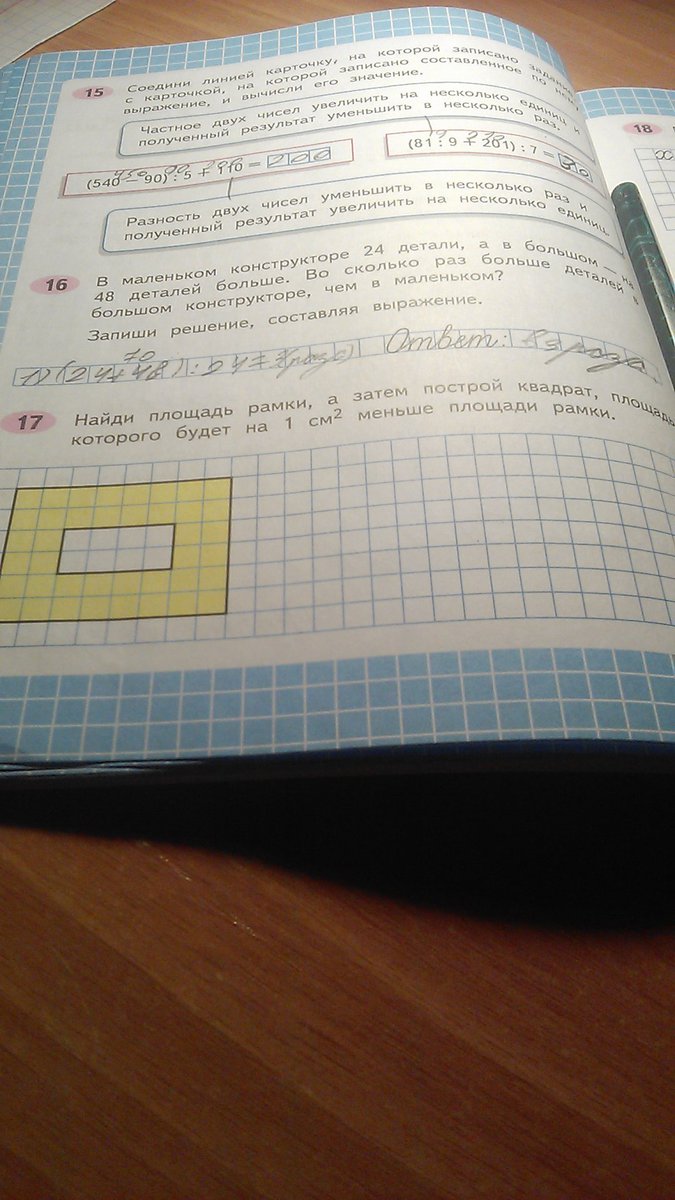 15 Соедини линией карточку, на которой записано задание,
с карточкой, на которой записано составленное по нему
выражение, и вычисли его значение.
Частное двух чисел увеличить на несколько единиц и
полученный результат уменьшить в несколько раз.
450 90 200
(540 − 90) : 5 + 110 = 200
(81 : 9 + 201) : 7 = 30
Разность двух чисел уменьшить в несколько раз и
полученный результат увеличить на несколько единиц.
16 В маленьком конструкторе 24 детали, а в большом — на
48 деталей больше. Во сколько раз больше деталей в
большом конструкторе, чем в маленьком?
Запиши решение, составляя выражение.
70
1) (24+48) : 24 = 3(раза) Ответ: в 3 раза.
17 Найди площадь рамки, а затем построй квадрат, площадь
которого будет на 1 см² меньше площади рамки.
18